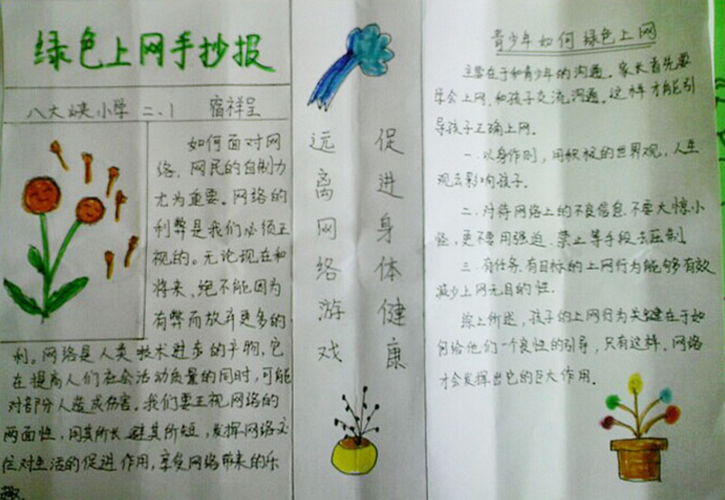 绿色上网手抄报
八大峡小学 二、1 宿祥呈
如何面对网
络,网民的自制力
尤为重要。网络的
利弊是我们必须正
视的。无论现在和
将来、绝不能因为
有弊而放弃更多的
利。网络是人类技术进步的产物,它
在提高人们社会活动质量的同时,可能
对部分人造成伤害。我们要正视网络的
两面性,用其所长,避其所短,发挥网络
对生活的促进作用,享受网络带来的乐
趣.
促进身体健康
远离网络游戏
青少年如何绿色上网
主要在于和青少年的沟通。家长首先要
学会上网,和孩子交流,沟通。这样才能引
导孩子正确上网。
一.以身作则,用积极的世界观,人生
观去影响孩子.
二.对待网络上的不良信息.不要大惊小
怪,更不要用强迫.禁止等手段去压制
三.有任务.有目标的上网行为能够有效
减少上网无目的性.
综上所述,孩子的上网行为关键在于如
何给他们一个良性的引导,只有这样.网络
才会发挥出它的巨大作用.